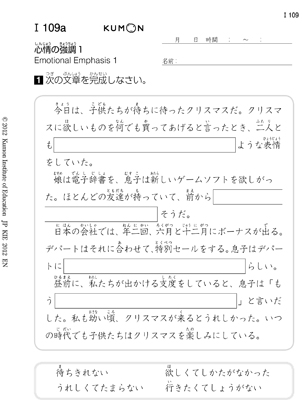 I 109
I 109a
KUMON
月 日 時間 : 〜 :
しんじょう きょうちょう
心情の強調 1
Emotional Emphasis 1
名前:
1 次の文章を完成しなさい。
今日は、子供たちが待ちに待ったクリスマスだ。クリスマ
スに欲しいものを何でも買ってあげると言ったとき、二人と
も ような表情
をしていた。
娘は電子辞書を、息子は新しいゲームソフトを欲しがっ
た。ほとんどの友達が持っていて、前から
そうだ。
日本の会社では、年二回、六月と十二月にボーナスが出る。
デパートはそれに合わせて、特別セールをする。息子はデパー
トに らしい。
昼前に、私たちが出かける支度をしていると、息子は「も
う 」と言いだ
した。私も幼い頃、クリスマスが来るとうれしかった。いつ
の時代でも子供たちはクリスマスを楽しみにしている。
待ちきれない 欲しくてしかたがなかった
うれしくてたまらない 行きたくてしょうがない
© 2012 Kumon Institute of Education JP KIE 2012 EN